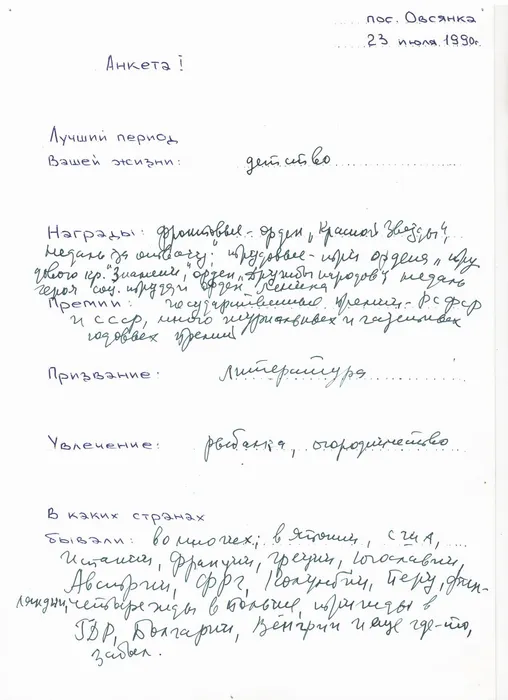 пос. Овсянка
23 июля 1990г.
Анкета!
Лучший период
Вашей жизни: детство
Награды: фронтовые - орден „Красной Звезды",
медаль „За отвагу"; трудовые - три ордена „Тру
дового кр. Знамени", орден „Дружбы народов", медаль
героя соц. труда и орден Ленина
Премии: государственные премии - РСФСР
и СССР, много журнальных и газетных
годовых премий
Призвание: Литература
Увлечение: рыбалка, огородничество
В каких странах
бывали: во многих; в Японии, США,
Испании, Франции, Греции, Югославии,
Австрии, ФРГ, Колумбии, Перу, Фин-
ляндии, четырежды в Польше, трижды в
ГДР, Болгарии, Венгрии и еще где-то,
забыл.